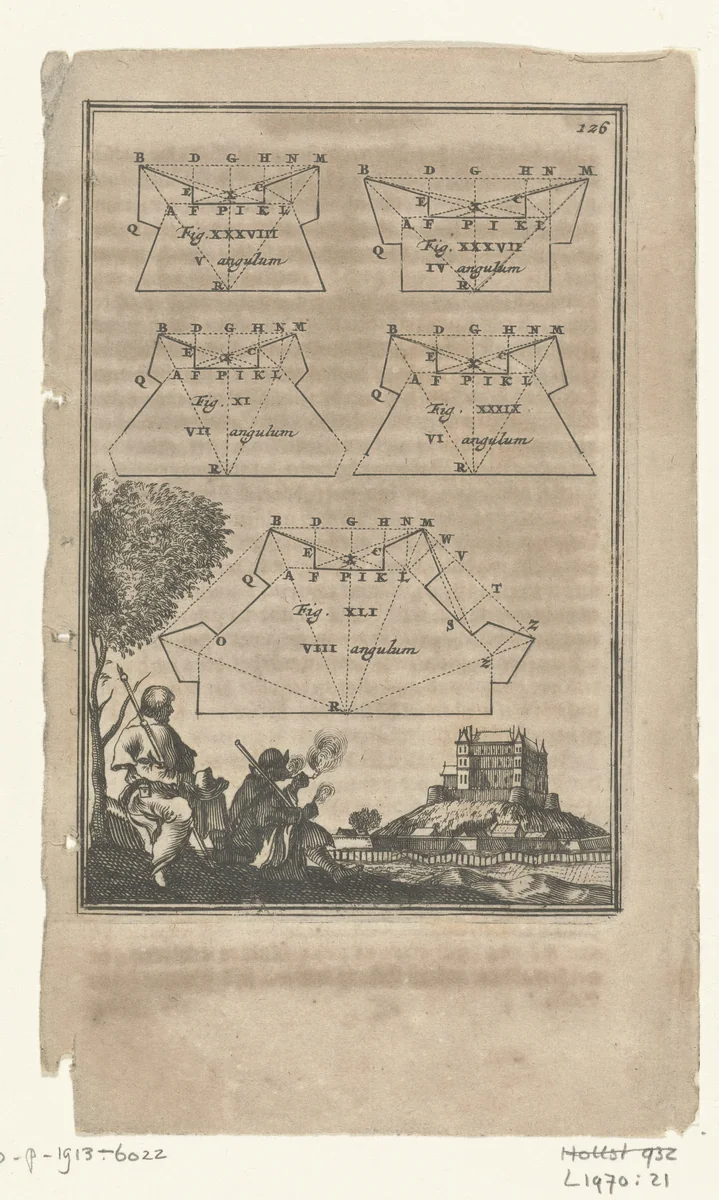 126
B D G H N M
E X C
A F P I K L
Q
Fig. XXXVIII
V angulum
R
B D G H N M
E X C
A F P I K L
Q
Fig. XXXVII
IV angulum
R
B D G H N M
E X C
Q A F P I K L
Fig. XI
VII angulum
R
B D G H N M
E X C
A F P I K L
Q
Fig. XXXIX
VI angulum
R
B D G H N M
W
E X C V
Q A F P I K L
T
Fig. XLI
S Z
O
VIII angulum
Z
R
-P-1913-6022
Hollst 932
L1970:21